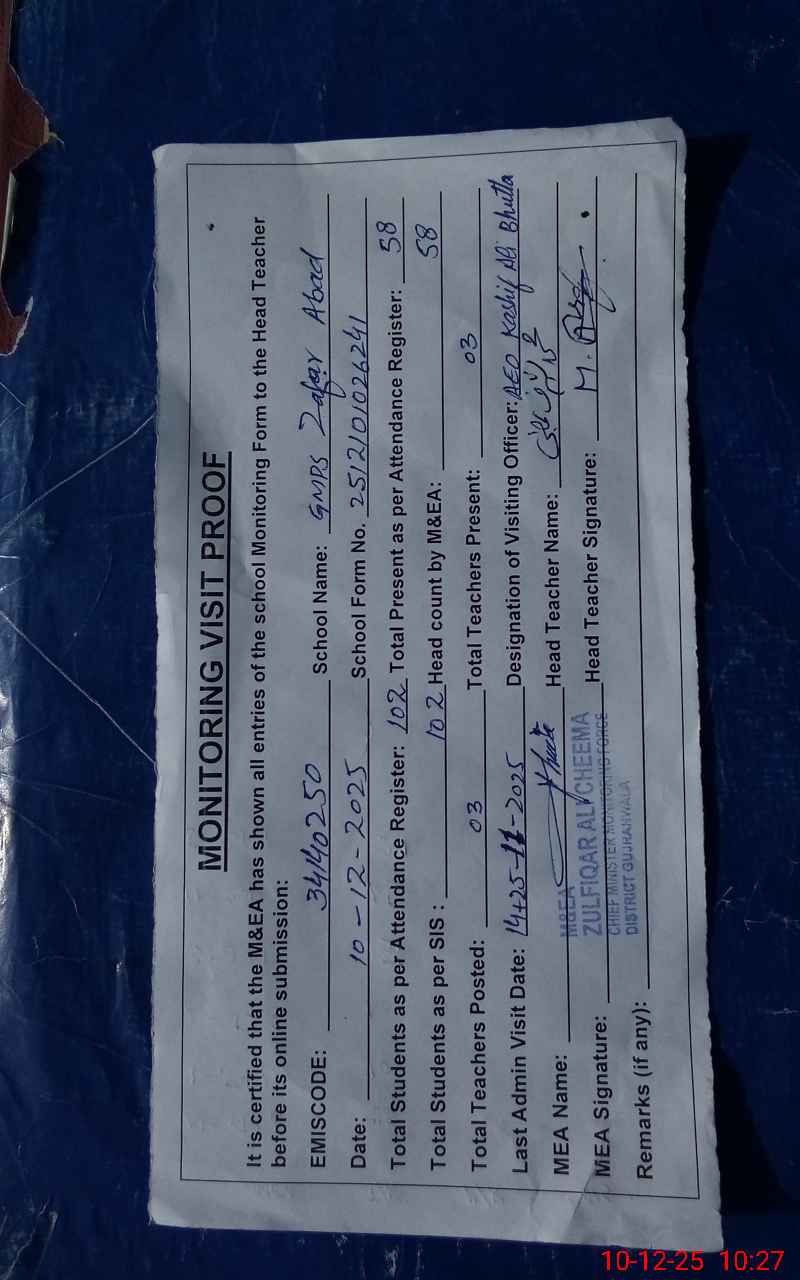 MONITORING VISIT PROOF
It is certified that the M&EA has shown all entries of the school Monitoring Form to the Head Teacher
before its online submission:
EMISCODE: 34140250 School Name: GMPS Zafar Abad
Date: 10-12-2025 School Form No. 2512101026241
Total Students as per Attendance Register: 102 Total Present as per Attendance Register: 58
Total Students as per SIS : 102 Head count by M&EA: 58
Total Teachers Posted: 03 Total Teachers Present: 03
Last Admin Visit Date: 14+25-11-2025 Designation of Visiting Officer: AEO Kashif Ali Bhutta
MEA Name: Head Teacher Name:
M&EA
ZULFIQAR ALI CHEEMA
CHIEF MINISTER MONITORING FORCE
DISTRICT GUJRANWALA
MEA Signature: Head Teacher Signature: M.
Remarks (if any):
10-12-25 10:27